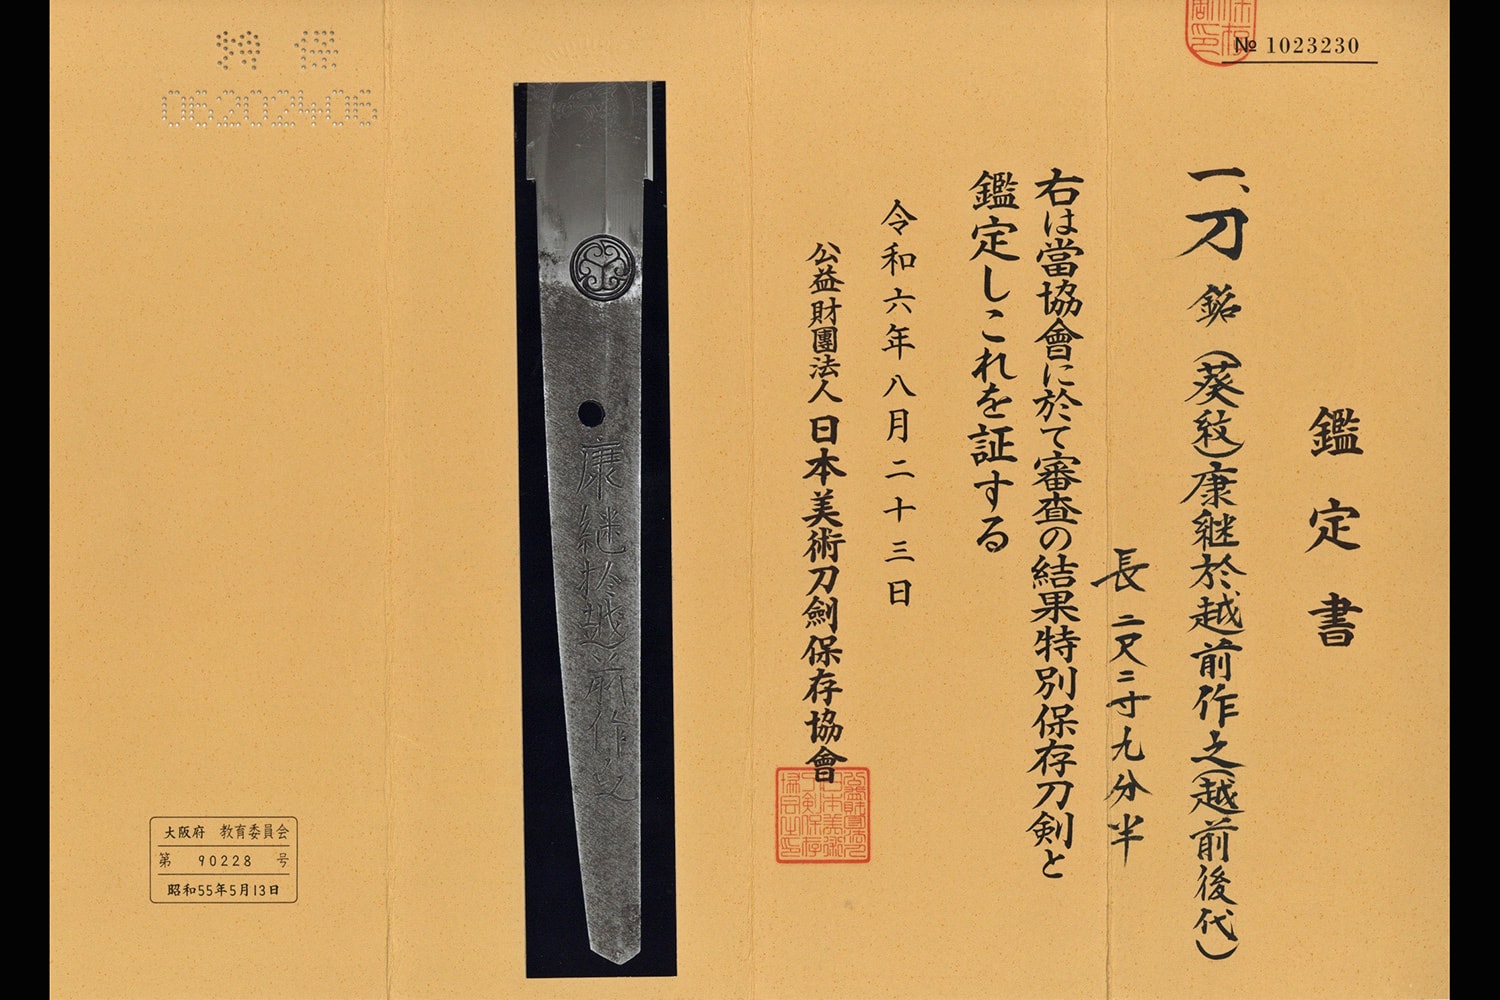 № 1023230
鑑定書
一、刀 銘(葵紋)康継於越前作之(越前後代)
長 二尺二寸九分半
右は當協會に於て審査の結果特別保存刀剣と
鑑定しこれを証する
令和六年八月二十三日
公益財團法人 日本美術刀劍保存協會
康継於越前作之
特保
06202406
大阪府 教育委員会
第 90228 号
昭和55年5月13日